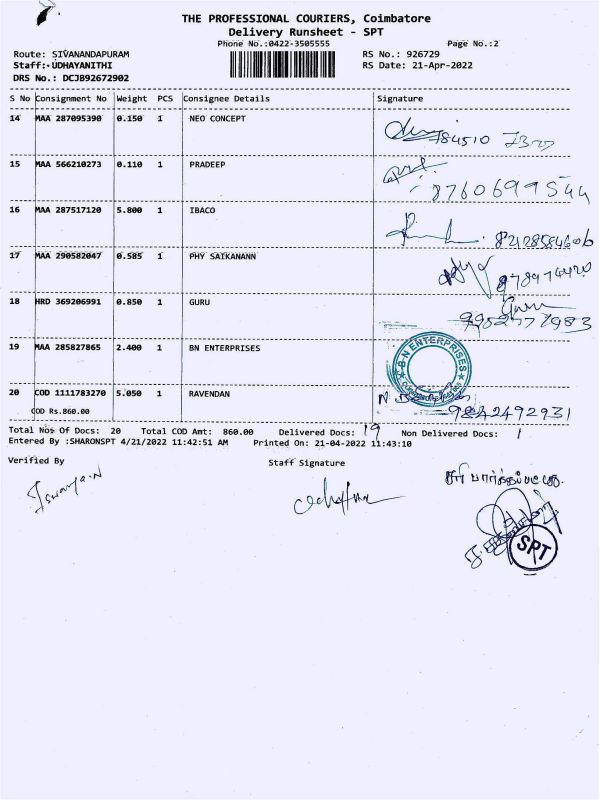 THE PROFESSIONAL COURIERS, Coimbatore
Delivery Runsheet - SPT
Phone No.:0422-3505555 Page No.:2
Route: SIVANANDAPURAM RS No.: 926729
Staff: UDHAYANITHI RS Date: 21-Apr-2022
DRS No.: DCJB92672902
S No Consignment No Weight PCS Consignee Details Signature
14 MAA 287095390 0.150 1 NEO CONCEPT
15 MAA 566210273 0.110 1 PRADEEP
8760699544
16 MAA 287517120 5.800 1 IBACO
8212858460b
17 MAA 290582047 0.585 1 PHY SAIKANANN
18 HRD 369206991 0.850 1 GURU
Guru
19 MAA 285827865 2.400 1 BN ENTERPRISES
B N ENTERPRISES
20 COD 1111783270 5.050 1 RAVENDAN
COD Rs.860.00 9842492931
Total Nos Of Docs: 20 Total COD Amt: 860.00 Delivered Docs: 19 Non Delivered Docs: 1
Entered By :SHARONSPT 4/21/2022 11:42:51 AM Printed On: 21-04-2022 11:43:10
Verified By Staff Signature
சரி பார்க்கப்பட்டது.
SPT